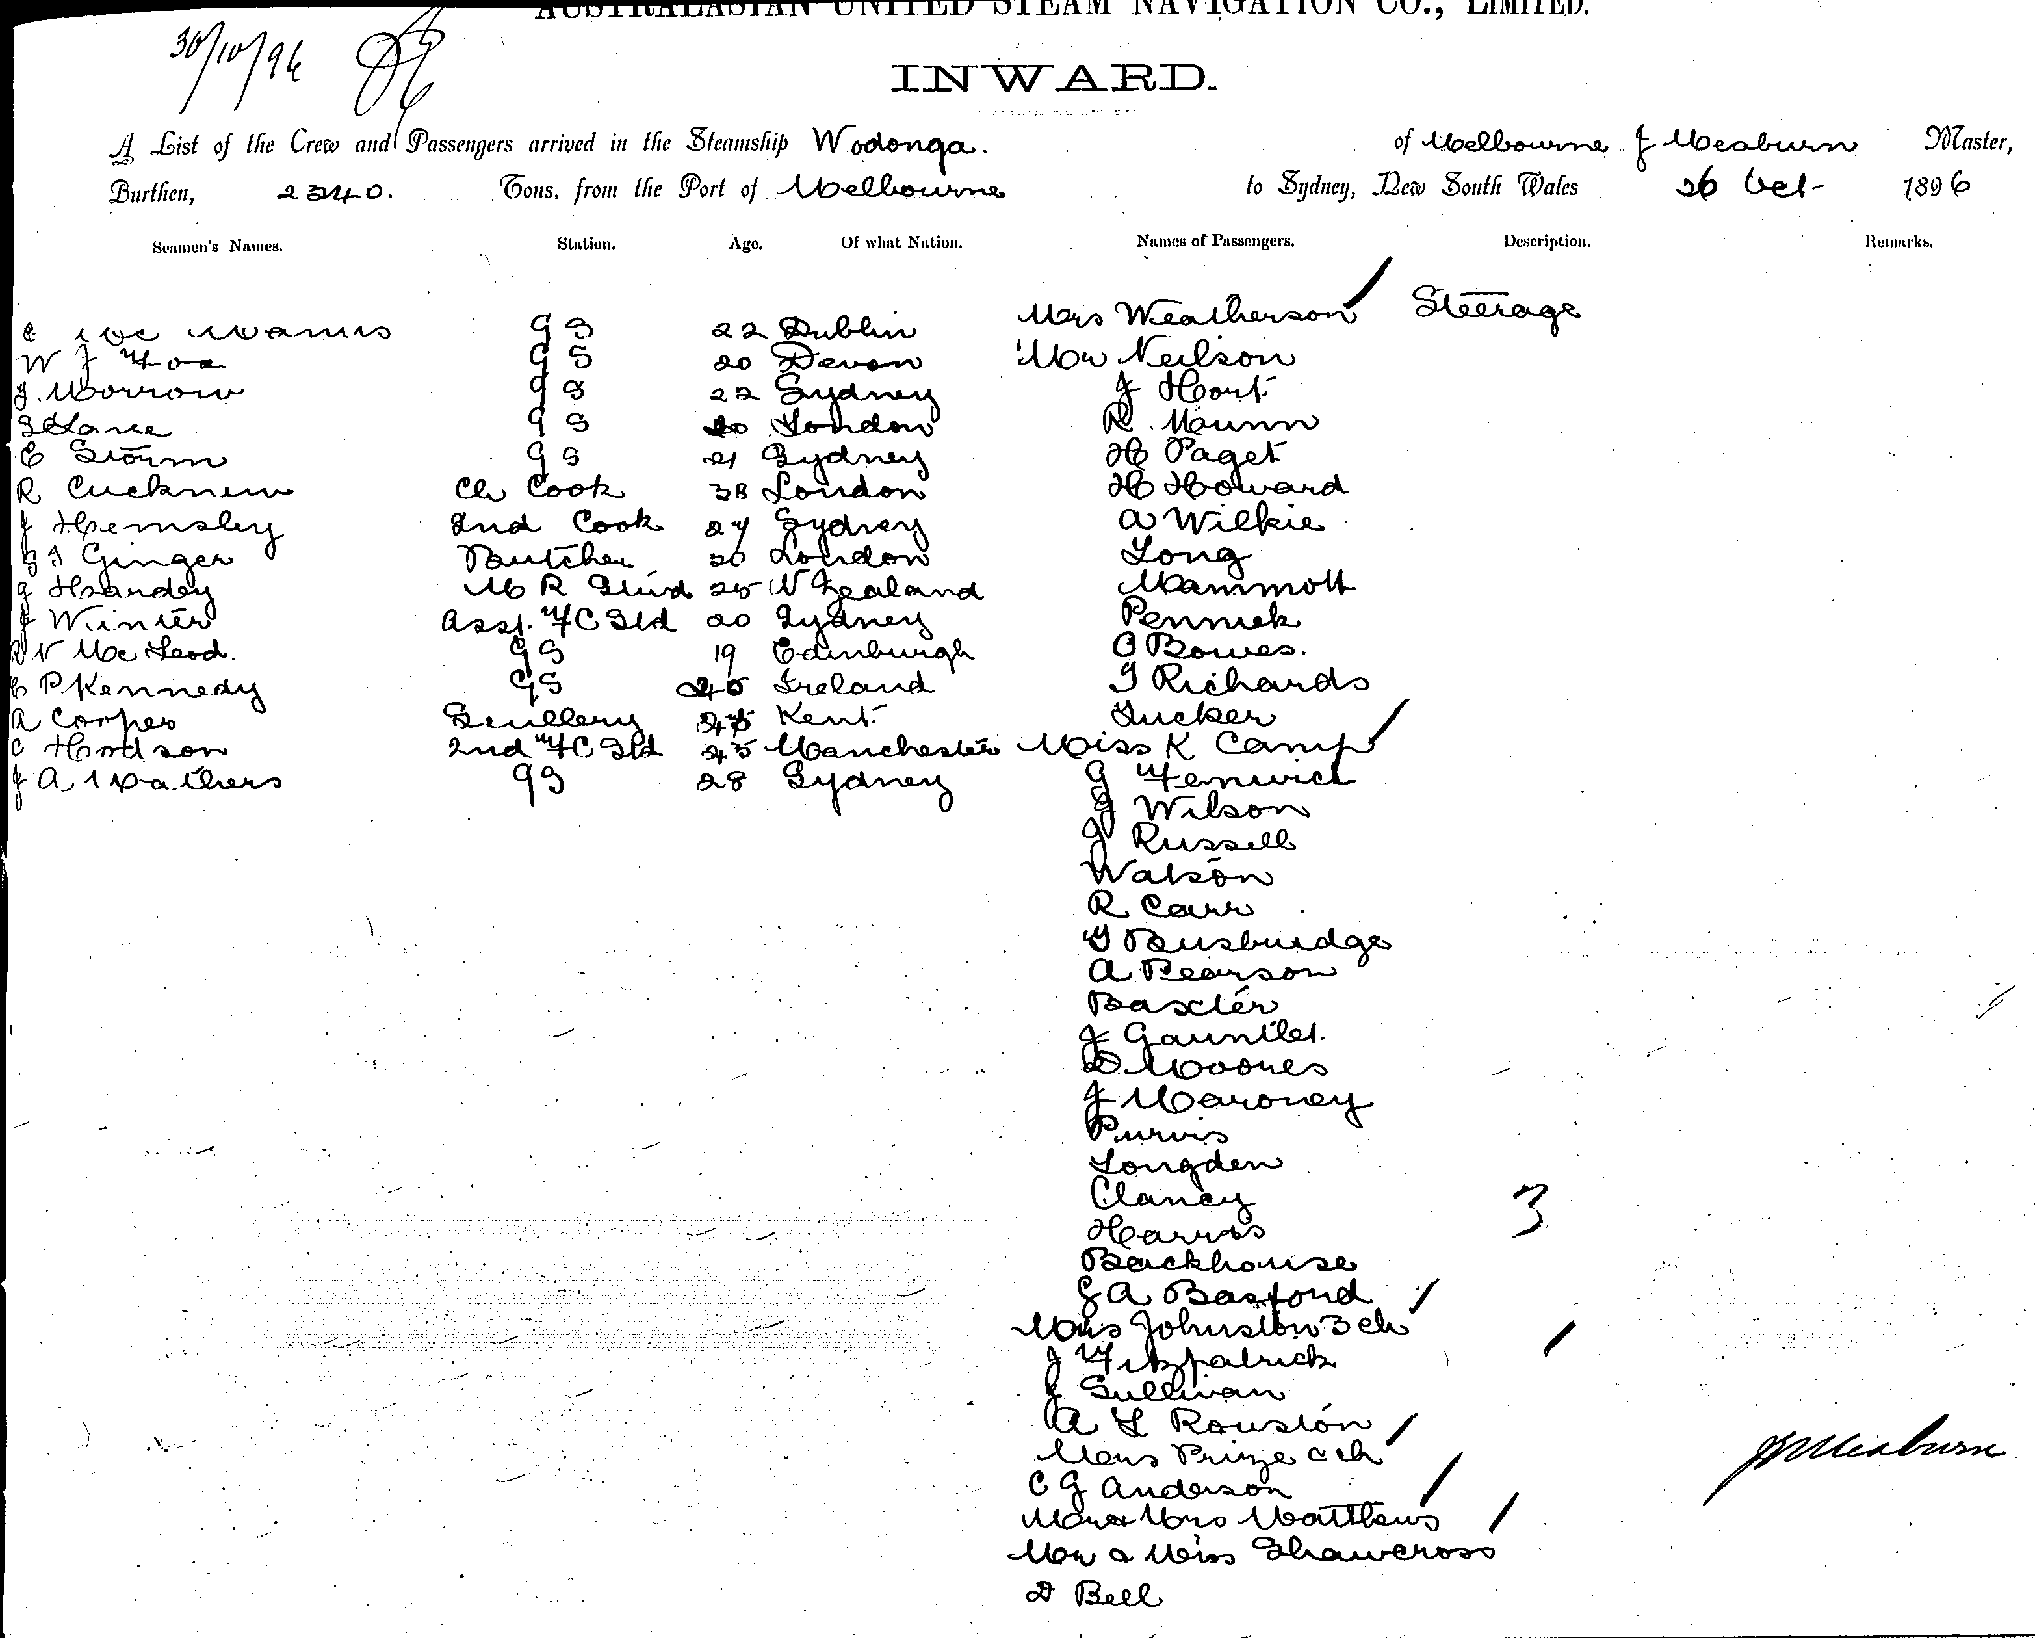 AUSTRALASIAN UNITED STEAM NAVIGATION CO., LIMITED.
30/10/96
INWARD.
A List of the Crew and Passengers arrived in the Steamship Wodonga. of Melbourne J Meaburn Master,
Burthen, 2340. Tons, from the Port of Melbourne to Sydney, New South Wales 26 Oct 1896
Seamen's Names. Station. Age. Of what Nation. Names of Passengers. Description. Remarks.
Mrs Weatherson Steerage
C Mc Manus G S 22 Dublin
W J Fox G S 20 Devon Mr Neilson
J. Morrow G S 22 Sydney J Hort
G S 20 London R. Munn
C Storm G S 21 Sydney H Paget
R Cucknem Ch Cook 38 London H Howard
J Hemsley 2nd Cook 27 Sydney A Wilkie
Ginger Butcher 20 London Long
J Handey M R Stwd 25 N Zealand Mammott
J Winter Asst. F C Std 20 Sydney Pennick
N McLeod. G S 19 Edinburgh C Bowes.
C P Kennedy G S Ireland T Richards
A Cooper Scullery Kent Tucker
C Hodson 2nd F C Std 25 Manchester Miss K Camp
J A Mathers G S 28 Sydney G Fenwick
J Wilson
J Russell
Watson
R Carr
T Busbridge
A Pearson
Baxter
J Gauntlet.
D Moores
J Maroney
Purvis
Longden
Clancy 3
Harris
Backhouse
G A Basford
Mrs Johnston 3 ch
J Fitzpatrick
J Sullivan
A L Rouston
Mrs Prize & ch
J Meaburn
C G Anderson
Mr & Mrs Matthews
Mr & Miss Shawcross
D Bell